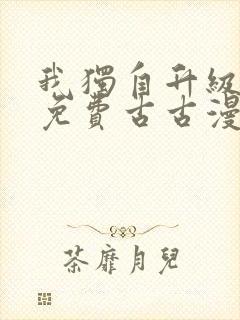 我獨自升級
免費古古漫
荼靡月兒